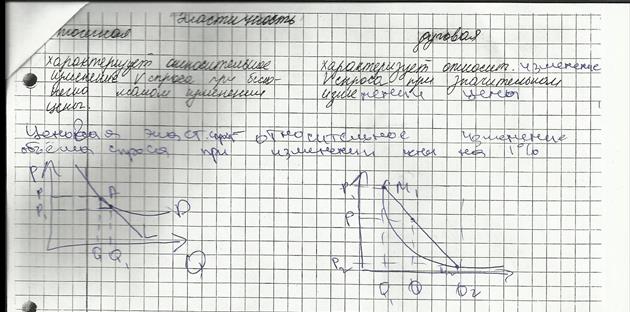 эластичность
точечная
дуговая
характеризует относительное
изменение V спроса при беско-
нечно малом изменении
цены.
характеризует относит. изменение
V спроса при значительном
изменении цены
Ценовая эласт. относительное изменение
объёма спроса при изменении цены на 1%
P
P
A
P₁
D
Q Q₁
Q
P₁
M₁
P
P₂
Q₁ Q Q₂